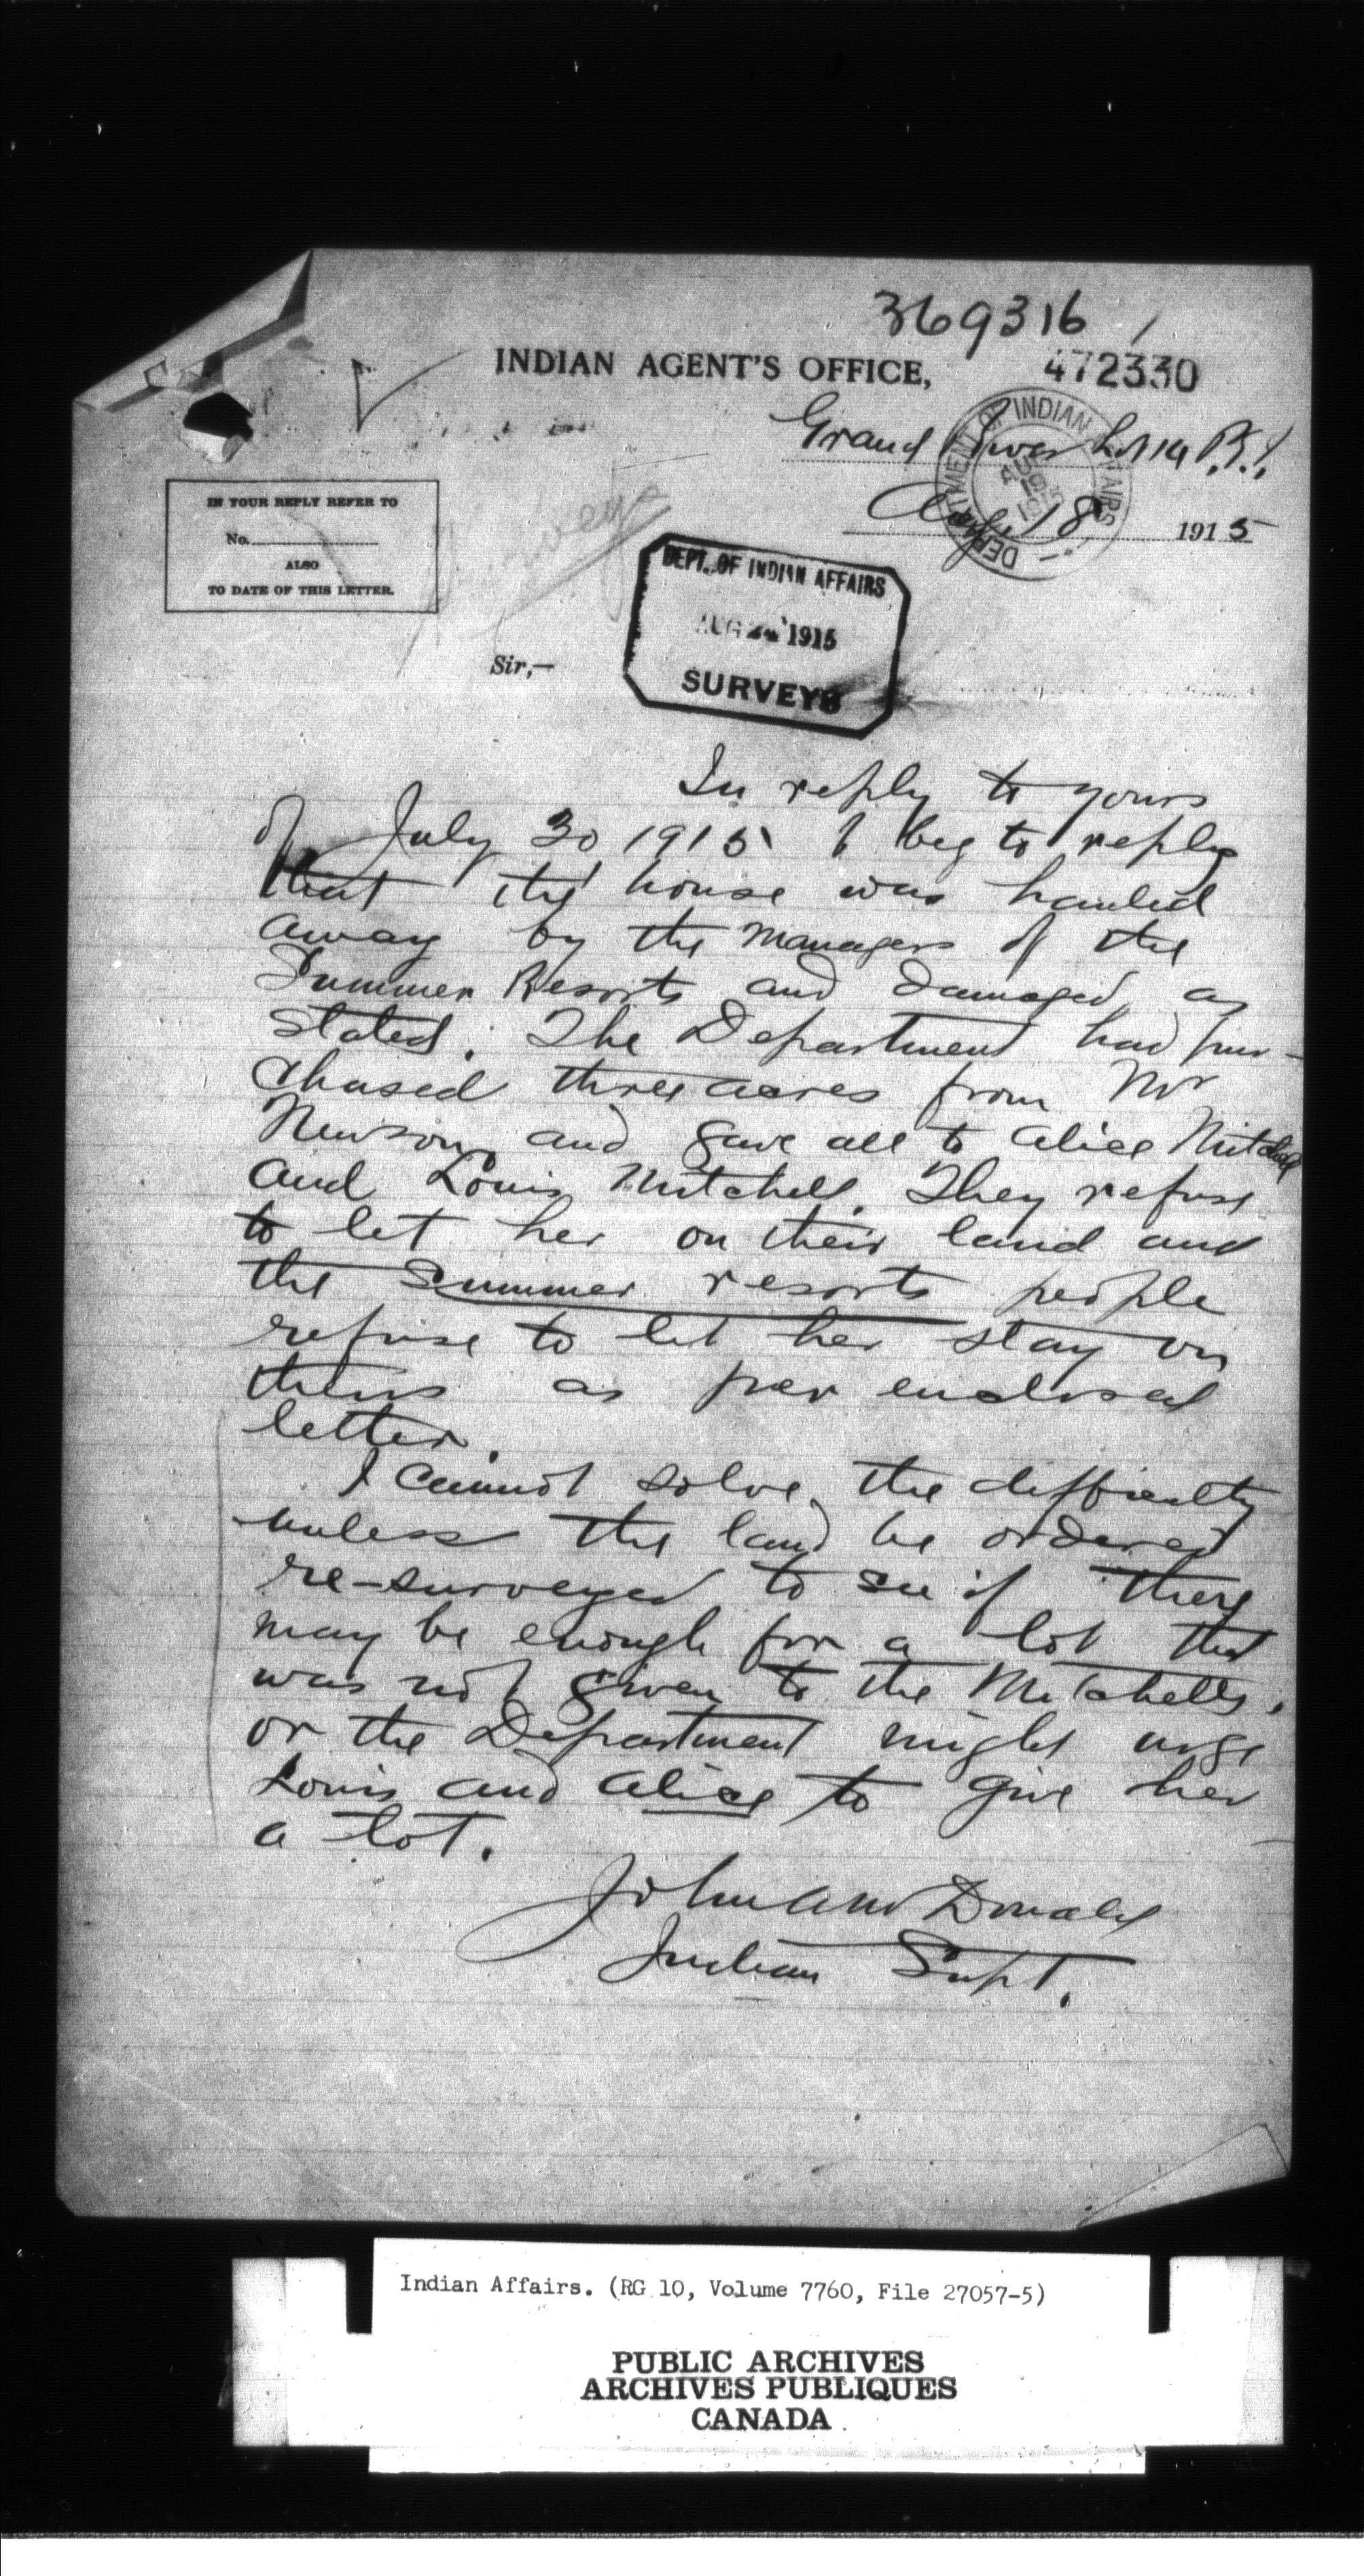 369316
INDIAN AGENT'S OFFICE,
472330
Grand River Lot 14 P.E.I.
Aug. 18 1915
DEPARTMENT OF INDIAN AFFAIRS
AUG 19 1915
IN YOUR REPLY REFER TO
No.
ALSO
TO DATE OF THIS LETTER.
Surveys
DEPT. OF INDIAN AFFAIRS
AUG 24 1915
SURVEYS
Sir,—
In reply to yours
of July 30 1915 I beg to reply
that the house was hauled
away by the managers of the
Summer Resorts and damaged as
stated. The Department had pur-
chased three acres from Mr
Newson and gave all to Alice Mitchell
and Louis Mitchell. They refuse
to let her on their land and
the Summer resorts people
refuse to let her stay on
theirs as per enclosed
letter.
I cannot solve the difficulty
unless the land be ordered
re-surveyed to see if there
may be enough for a lot that
was not given to the Mitchells,
or the Department might urge
Louis and Alice to give her
a lot.
John A McDonald
Indian Supt.
Indian Affairs. (RG 10, Volume 7760, File 27057-5)
PUBLIC ARCHIVES
ARCHIVES PUBLIQUES
CANADA